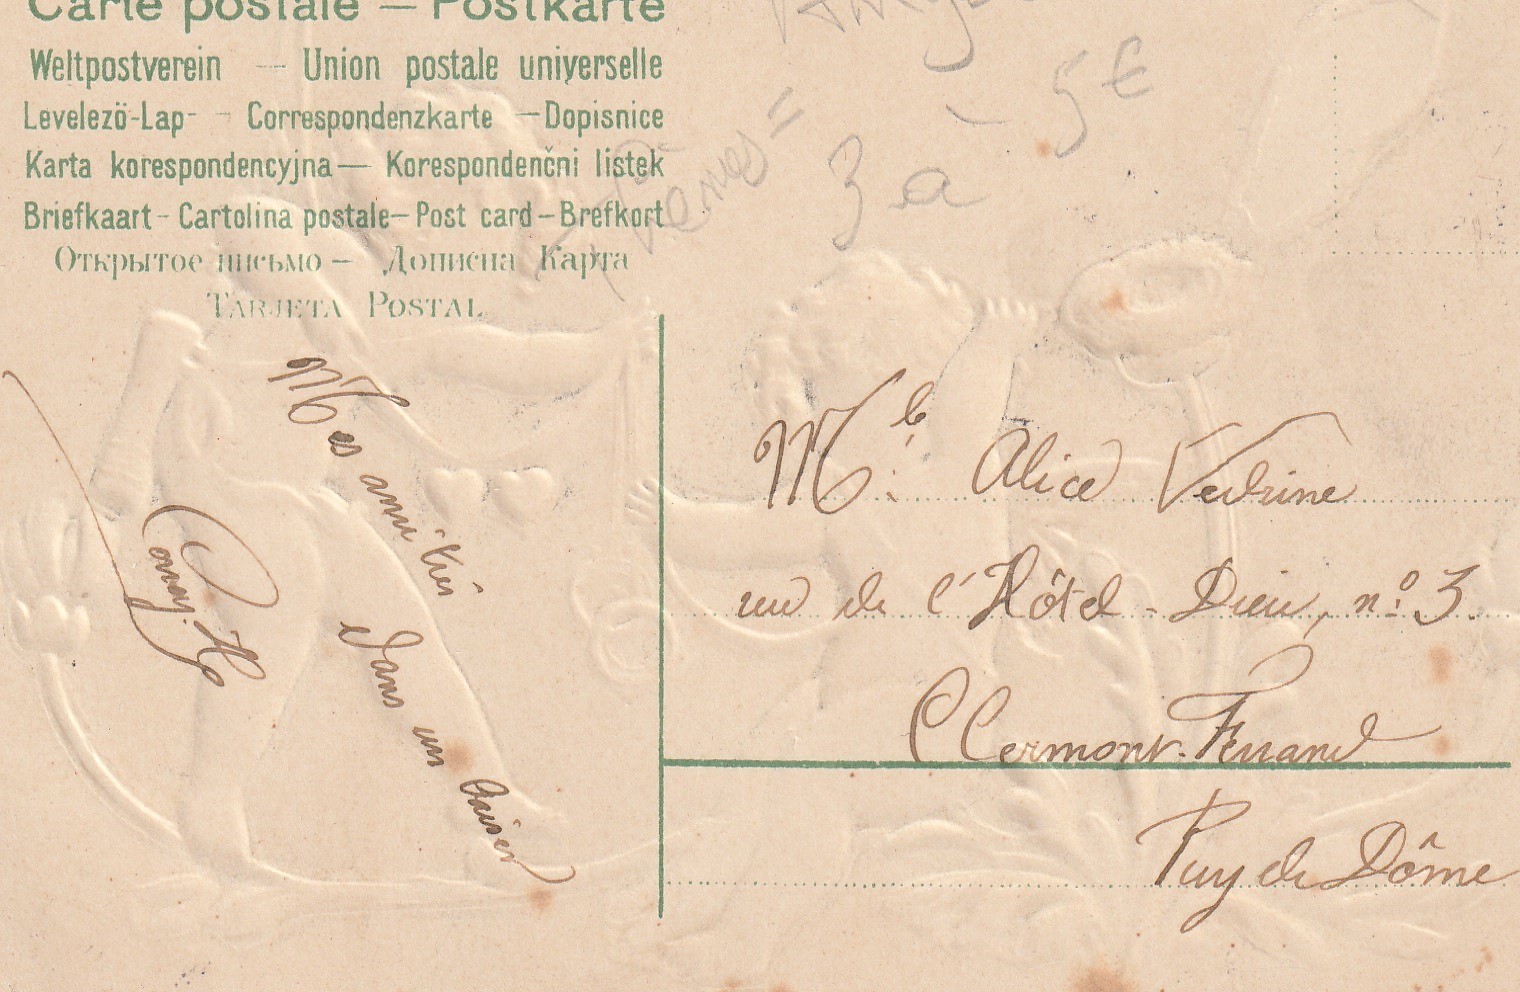 Carte postale — Postkarte
Weltpostverein — Union postale universelle
Levelezö-Lap - - Correspondenzkarte — Dopisnice
Karta korespondencyjna — Korespondenčni listek
Briefkaart - Cartolina postale — Post card — Brefkort
Открытое письмо — Дописна Карта
TARJETA POSTAL
3 a - 5€
Mes amitiés
dans un baiser
Mlle Alice Vedrine
rue de l'Hôtel-Dieu, nº 3.
Clermont-Ferrand
Puy de Dôme